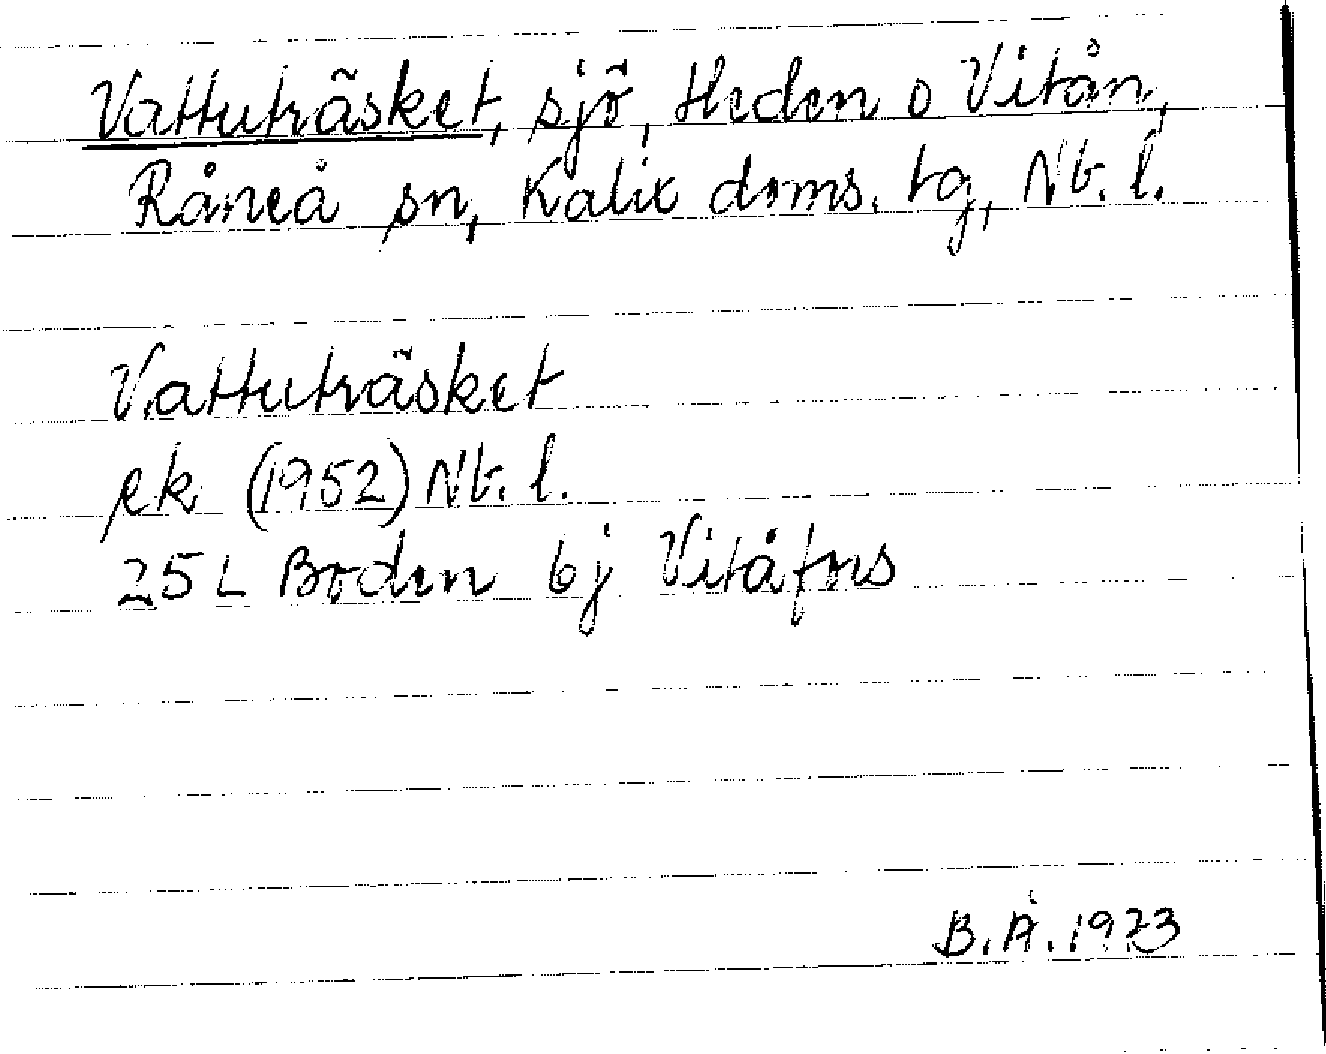 Vattuträsket, sjö, Heden o Vitån,
Råneå sn, Kalix doms. tg, Nb. l.
Vattuträsket
ek (1952) Nb. l.
25 L Boden bj Vitåfors
B. Å. 1973